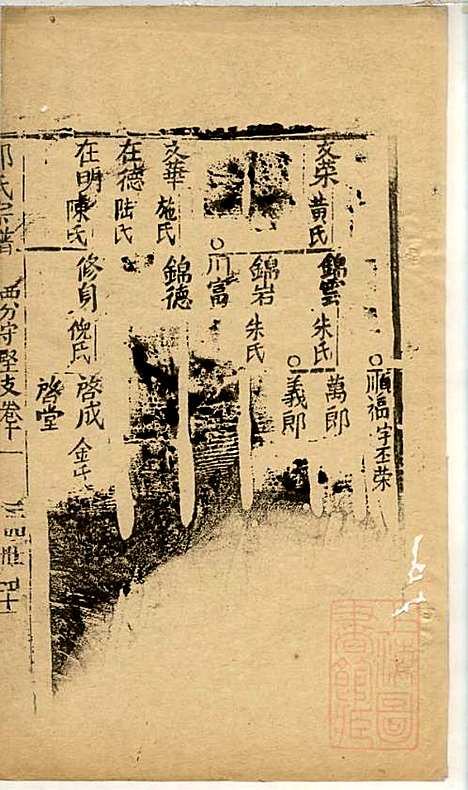 文荣 黄氏
錦雲 朱氏
順福 字丕荣
萬郎
義郎
錦岩 朱氏
川富
文華 施氏
錦德
在德 陆氏
在明 陳氏
修身 倪氏
啓成 金氏
啓堂
氏宗譜 西分守堅支卷十一